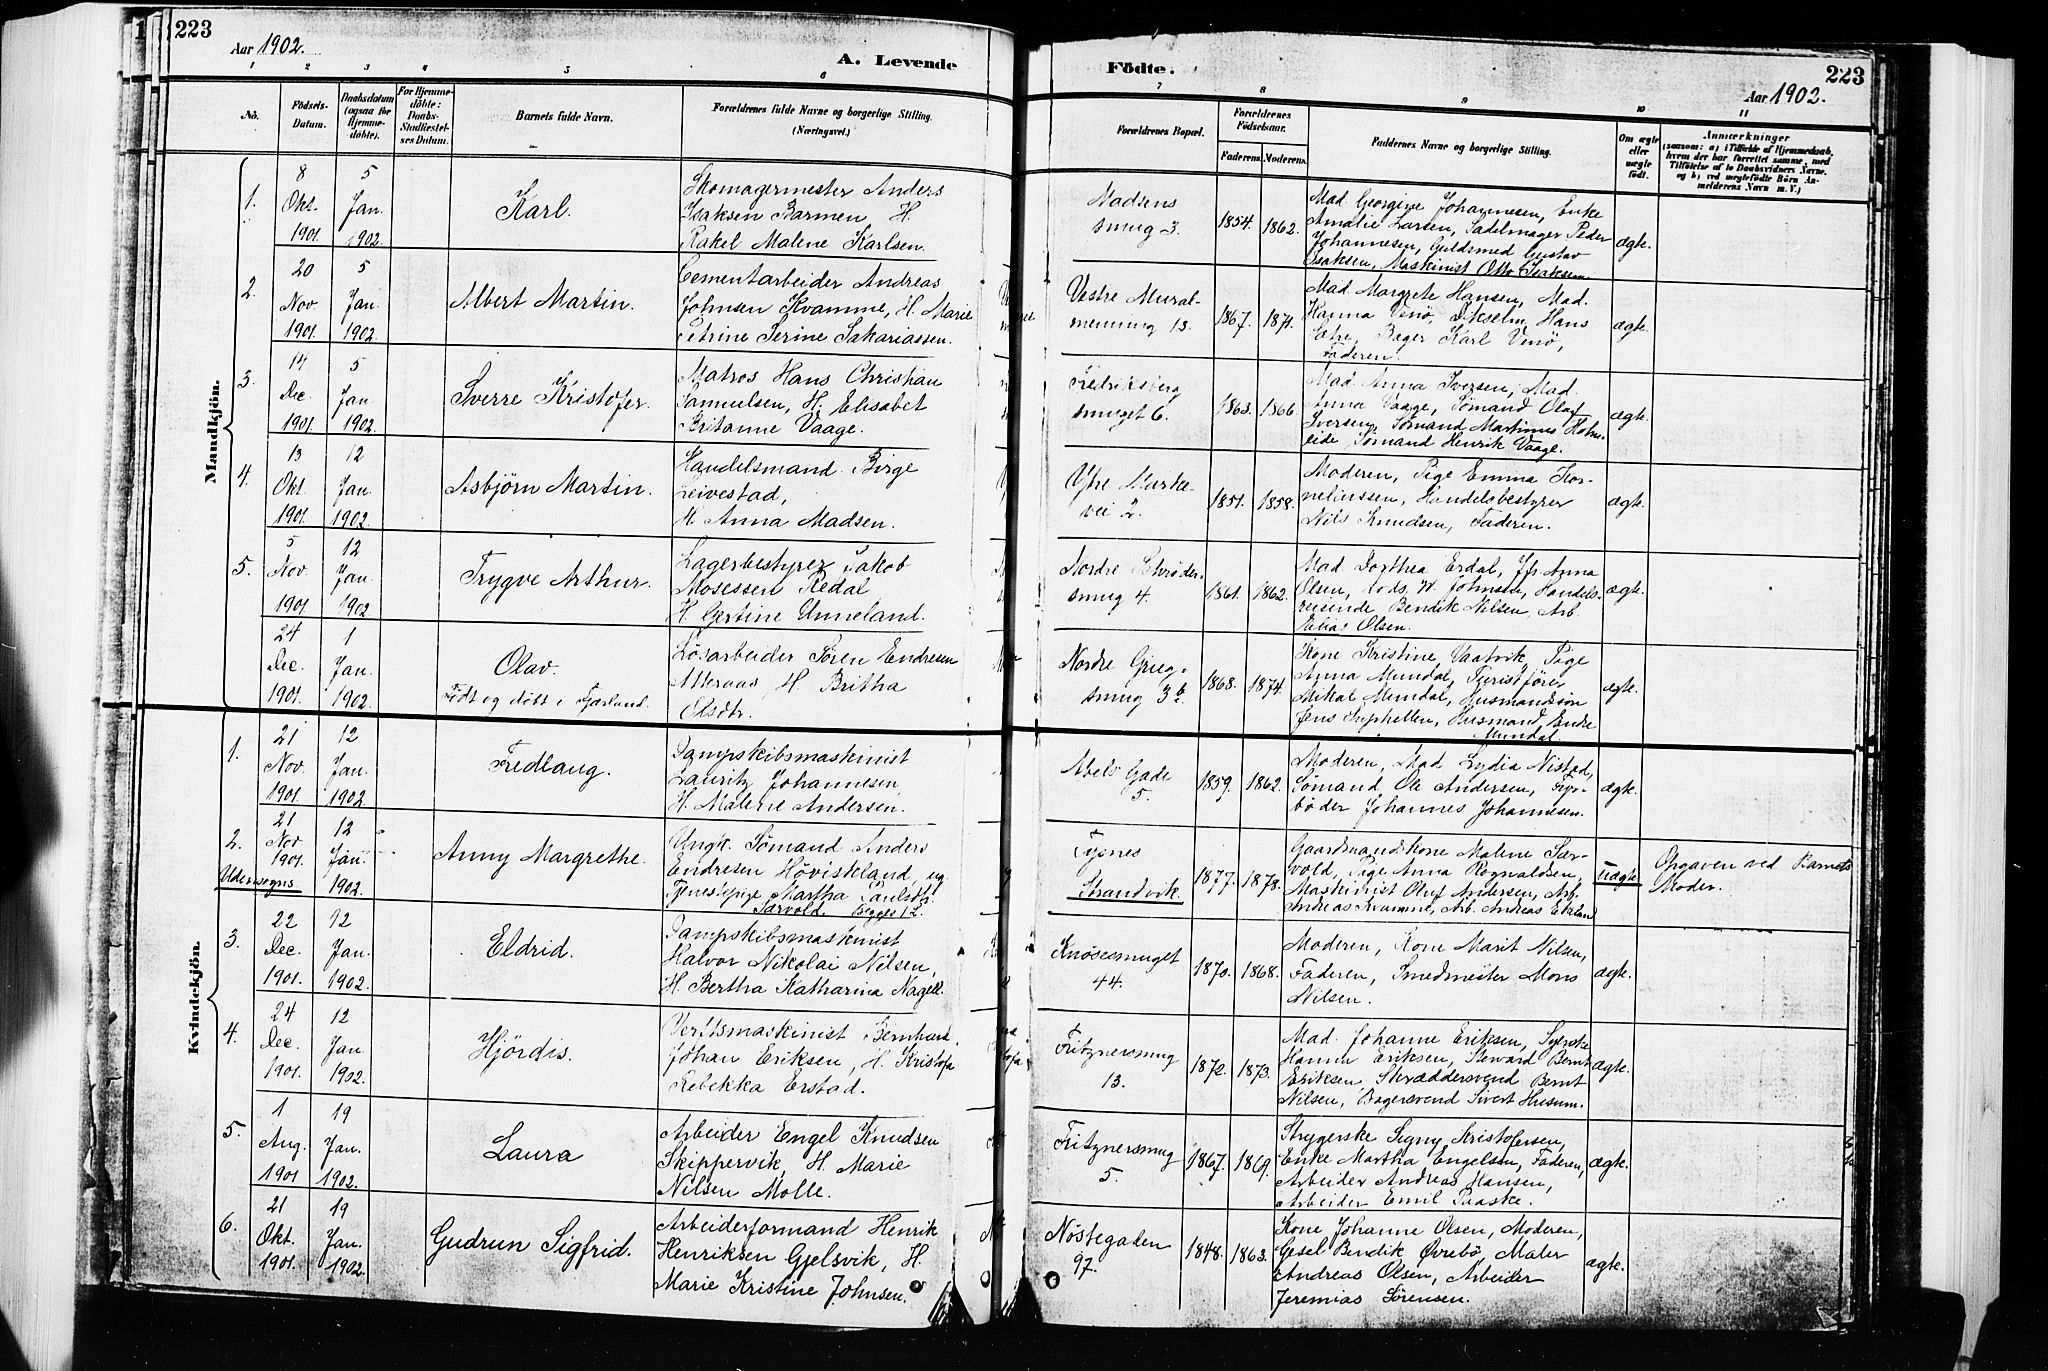 223
Aar 1902.
A. Levende
Födte.
223
Aar 1902.
1 2 3 4 5 6 7 8 9 10 11
No.
Födsels-
Datum.
Daabsdatum
(ogsaa for
Hjemme-
döbte).
For Hjemme-
döbte:
Daabs-
Stadfæstel-
ses Datum.
Barnets fulde Navn.
Forældrenes fulde Navne og borgerlige Stilling.
(Næringsvei.)
Forældrenes Bopæl.
Forældrenes
Födselsaar.
Faderens. Moderens.
Faddernes Navne og borgerlige Stilling.
Om ægte
eller
uægte
födt.
Anmærkninger
(saasom: a) i Tilfælde af Hjemmedaab,
hvem der har forrettet samme, med
Tilföielse af to Daabsvidners Navne,
og b) ved uægtefödte Börn An-
melderens Navn m. V.)
Mandkjön.
1.
8
Okt.
1901.
5
Jan.
1902.
Karl.
Skomagermester Anders
Isaksen Barmen, H.
Rakel Malene Karlsen.
Madsens
smug 3.
1854. 1862.
Mad. Georgine Johannesen, Enke
Amalie Larsen, Sadelmager Peder
Johannesen, Guldsmed Gustav
Isaksen, Maskinist Otto Isaksen.
ægte.
2.
20
Nov.
1901.
5
Jan.
1902.
Albert Martin.
Cementarbeider Andreas
Johnsen Kvamme, H. Marie
Petrine Serine Sakariassen.
Vestre Mural-
menning 13.
1867. 1871.
Mad. Margrete Hansen, Mad.
Hanna Venö, Hans
Sætre, Bager Karl Venö,
Faderen.
ægte.
3.
14
Dec.
1901.
5
Jan.
1902.
Sverre Kristofer.
Matros Hans Christian
Samuelsen, H. Elisabet
Britanne Vaage.
Fredriksberg
smuget 6.
1863. 1866
Mad. Anna Iversen, Mad.
Anna Vaage, Sömand Olaf
Iversen, Sömand Martinus Holm-
eide, Sömand Henrik Vaage.
ægte.
4.
13
Okt.
1901.
12
Jan.
1902.
Asbjörn Martin.
Handelsmand Birge
Leivestad,
H. Anna Madsen.
Ytre Murke-
vei 2.
1851. 1858.
Moderen, Pige Emma Kor-
neliussen, Handelsbestyrer
Nils Knudsen, Faderen.
ægte.
5.
5
Nov.
1901
12
Jan.
1902.
Trygve Arthur.
Lagerbestyrer Jakob
Mosessen Redal,
H. Gertine Unneland.
Nordre Schröder-
smug 4.
1861. 1862.
Mad Dorthea Erdal, Jfr Anna
Olsen, Johnsen, Handels-
reisende Bendik Nilsen, Arb.
Elias Olsen.
ægte.
24
Dec.
1901.
1
Jan.
1902.
Olav.
Födt og döbt i Fjærland.
Lösarbeider Sören Endresen
H. Britha
Olsdtr.
Nordre Grieg-
smug 3 b.
1868. 1874.
Kone Kristine Vaatvik, Pige
Anna Mundal, Turistförer
Mikal Mundal, Husmandssön
Jens Suphellen, Husmand Endre
Mundal.
ægte.
Kvindekjön.
1.
21
Nov.
1901.
12
Jan.
1902.
Fredlaug.
Dampskibsmaskinist
Lauritz Johannesen,
H. Malene Andersen.
Abels Gade
5.
1859. 1862.
Moderen, Mad Lydia Nistad,
Sömand Ole Andersen, Fyr-
böder Johannes Johannesen.
ægte.
2.
Udensogns
21
Nov.
1901.
12
Jan.
1902.
Anny Margrethe.
Ungk. Sömand Anders
Endresen Höviskeland, og
Tjenestepige Martha Paulsdtr.
Særvold. Begges 1 L.
Tysnes
Strandvik.
1877. 1878.
Gaardmandskone Malene Sær-
vold, Pige Anna Rognaldsen,
Maskinist Oluf Andersen, Arb.
Andreas Kvamme, Arb. Andreas Ekeland
uægte
Opgaven ved Barnets
Moder.
3.
22
Dec.
1901.
12
Jan.
1902.
Eldrid.
Dampskibsmaskinist
Halvor Nikolai Nilsen,
H. Bertha Katharina Nagell.
Knösesmuget
44.
1870. 1868.
Moderen, Kone Marit Nilsen,
Faderen, Smedmester Mons
Nilsen.
ægte.
4.
24
Dec.
1901.
12
Jan.
1902.
Hjördis.
Verftsmaskinist Bernhard
Johan Eriksen, H. Kristofa
Rebekka Erstad.
Fritznersmug
13.
1872. 1873.
Mad. Johanne Eriksen, Syerske
Hanna Eriksen, Steward Bernt
Eriksen, Skræddersvend Bernt
Nilsen, Bagersvend Sivert Husum.
ægte.
5.
1
Aug.
1901
19
Jan.
1902.
Laura
Arbeider Engel Knudsen
Skippervik, H. Marie
Nilsen Molle.
Fritznersmug
5.
1867. 1869.
Strygerske Signy Kristofersen,
Enke Martha Engelsen, Faderen,
Arbeider Andreas Hansen,
Arbeider Emil Paaske.
ægte.
6.
21
Okt.
1901.
19
Jan.
1902.
Gudrun Sigfrid.
Arbeiderformand Henrik
Henriksen Gjelsvik, H.
Marie Kristine Johnsen.
Nöstegaden
97.
1848. 1863.
Kone Johanne Olsen, Moderen,
Gesel Bendik Övrebö, Maler
Andreas Olsen, Arbeider
Jeremias Sörensen.
ægte.